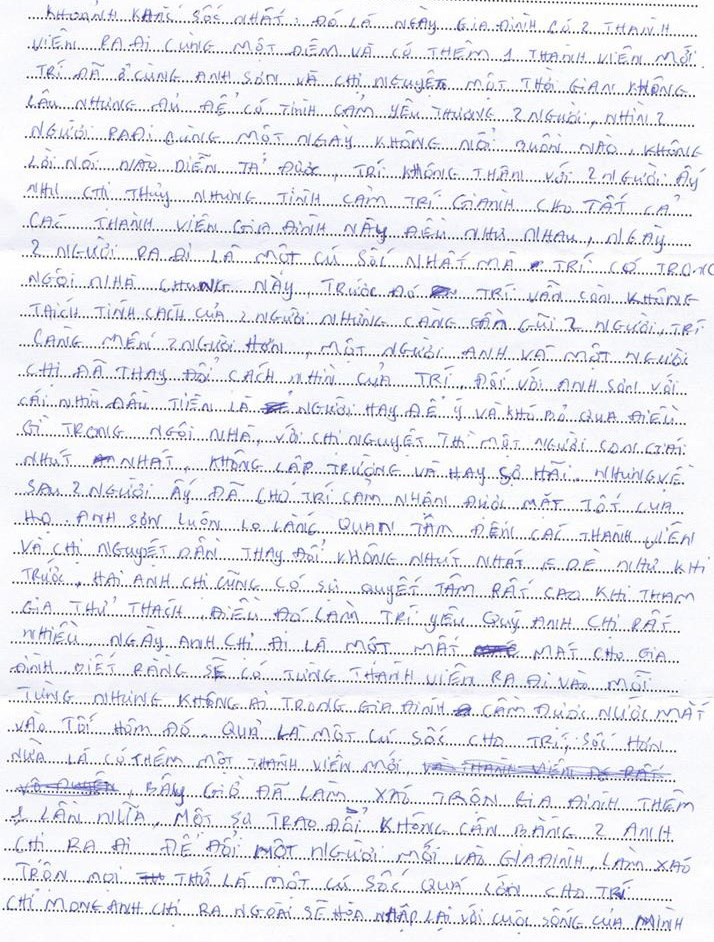 KHOẢNH KHẮC SỐC NHẤT: ĐÓ LÀ NGÀY GIA ĐÌNH CÓ 2 THÀNH
VIÊN RA ĐI CÙNG MỘT ĐÊM VÀ CÓ THÊM 1 THÀNH VIÊN MỚI.
TRÍ ĐÃ Ở CÙNG ANH SƠN VÀ CHỊ NGUYỆT MỘT THỜI GIAN KHÔNG
LÂU NHƯNG ĐỦ ĐỂ CÓ TÌNH CẢM YÊU THƯƠNG 2 NGƯỜI, NHÌN 2
NGƯỜI RA ĐI CÙNG MỘT NGÀY KHÔNG NỖI BUỒN NÀO, KHÔNG
LỜI NÓI NÀO DIỄN TẢ ĐƯỢC, TRÍ KHÔNG THÂN VỚI 2 NGƯỜI ẤY
NHƯ CHỊ THỦY NHƯNG TÌNH CẢM TRÍ GIÀNH CHO TẤT CẢ
CÁC THÀNH VIÊN GIA ĐÌNH NÀY ĐỀU NHƯ NHAU, NGÀY
2 NGƯỜI RA ĐI LÀ MỘT CÚ SỐC NHẤT MÀ TRÍ CÓ TRONG
NGÔI NHÀ CHUNG NÀY, TRƯỚC ĐÓ TRÍ VẪN CÒN KHÔNG
THÍCH TÍNH CÁCH CỦA 2 NGƯỜI NHƯNG CÀNG GẦN GŨI 2 NGƯỜI, TRÍ
CÀNG MẾN 2 NGƯỜI HƠN, MỘT NGƯỜI ANH VÀ MỘT NGƯỜI
CHỊ ĐÃ THAY ĐỔI CÁCH NHÌN CỦA TRÍ, ĐỐI VỚI ANH SƠN VỚI
CÁI NHÌN ĐẦU TIÊN LÀ NGƯỜI HAY ĐỂ Ý VÀ KHÓ BỎ QUA ĐIỀU
GÌ TRONG NGÔI NHÀ, VỚI CHỊ NGUYỆT THÌ MỘT NGƯỜI CON GÁI
NHÚT NHÁT, KHÔNG LẬP TRƯỜNG VÀ HAY SỢ HÃI. NHƯNG VỀ
SAU 2 NGƯỜI ẤY ĐÃ CHO TRÍ CẢM NHẬN ĐƯỢC MẶT TỐT CỦA
HỌ. ANH SƠN LUÔN LO LẮNG QUAN TÂM ĐẾN CÁC THÀNH VIÊN
VÀ CHỊ NGUYỆT DẦN THAY ĐỔI KHÔNG NHÚT NHÁT E DÈ NHƯ KHI
TRƯỚC, HAI ANH CHỊ CŨNG CÓ SỰ QUYẾT TÂM RẤT CAO KHI THAM
GIA THỬ THÁCH, ĐIỀU ĐÓ LÀM TRÍ YÊU QUÝ ANH CHỊ RẤT
NHIỀU, NGÀY ANH CHỊ ĐI LÀ MỘT MẤT MÁT CHO GIA
ĐÌNH, BIẾT RẰNG SẼ CÓ TỪNG THÀNH VIÊN RA ĐI VÀO MỖI
TỪNG NHƯNG KHÔNG AI TRONG GIA ĐÌNH CẦM ĐƯỢC NƯỚC MẮT
VÀO TỐI HÔM ĐÓ. QUẢ LÀ MỘT CÚ SỐC CHO TRÍ, SỐC HƠN
NỮA LÀ CÓ THÊM MỘT THÀNH VIÊN MỚI,
BÂY GIỜ ĐÃ LÀM XÁO TRỘN GIA ĐÌNH THÊM
1 LẦN NỮA, MỘT SỰ TRAO ĐỔI KHÔNG CÂN BẰNG 2 ANH
CHỊ RA ĐI ĐỂ ĐỔI MỘT NGƯỜI MỚI VÀO GIA ĐÌNH, LÀM XÁO
TRỘN MỌI THỨ LÀ MỘT CÚ SỐC QUÁ LỚN CHO TRÍ
CHỈ MONG ANH CHỊ RA NGOÀI SẼ HÒA NHẬP LẠI VỚI CUỘC SỐNG CỦA MÌNH